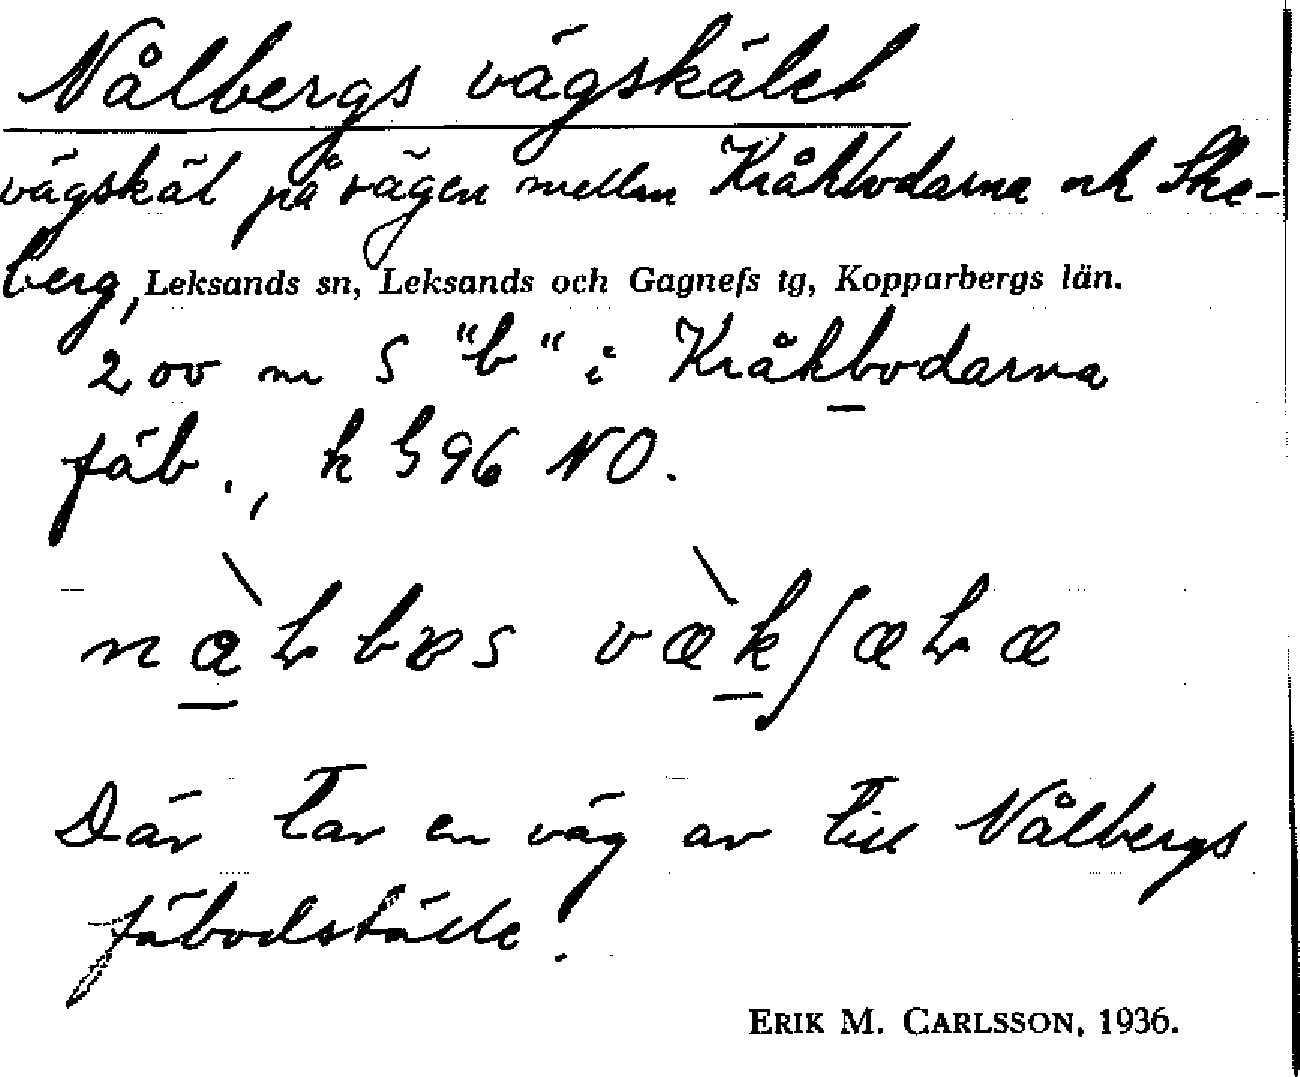 Nålbergs vägskälet
vägskäl på vägen mellan Kråkbodarna och Ske-
berg, Leksands sn, Leksands och Gagnefs tg, Kopparbergs län.
200 m S "b" i Kråkbodarna
fäb., k 596 NO.
Där tar en väg av till Nålbergs
fäbodställe.
ERIK M. CARLSSON, 1936.